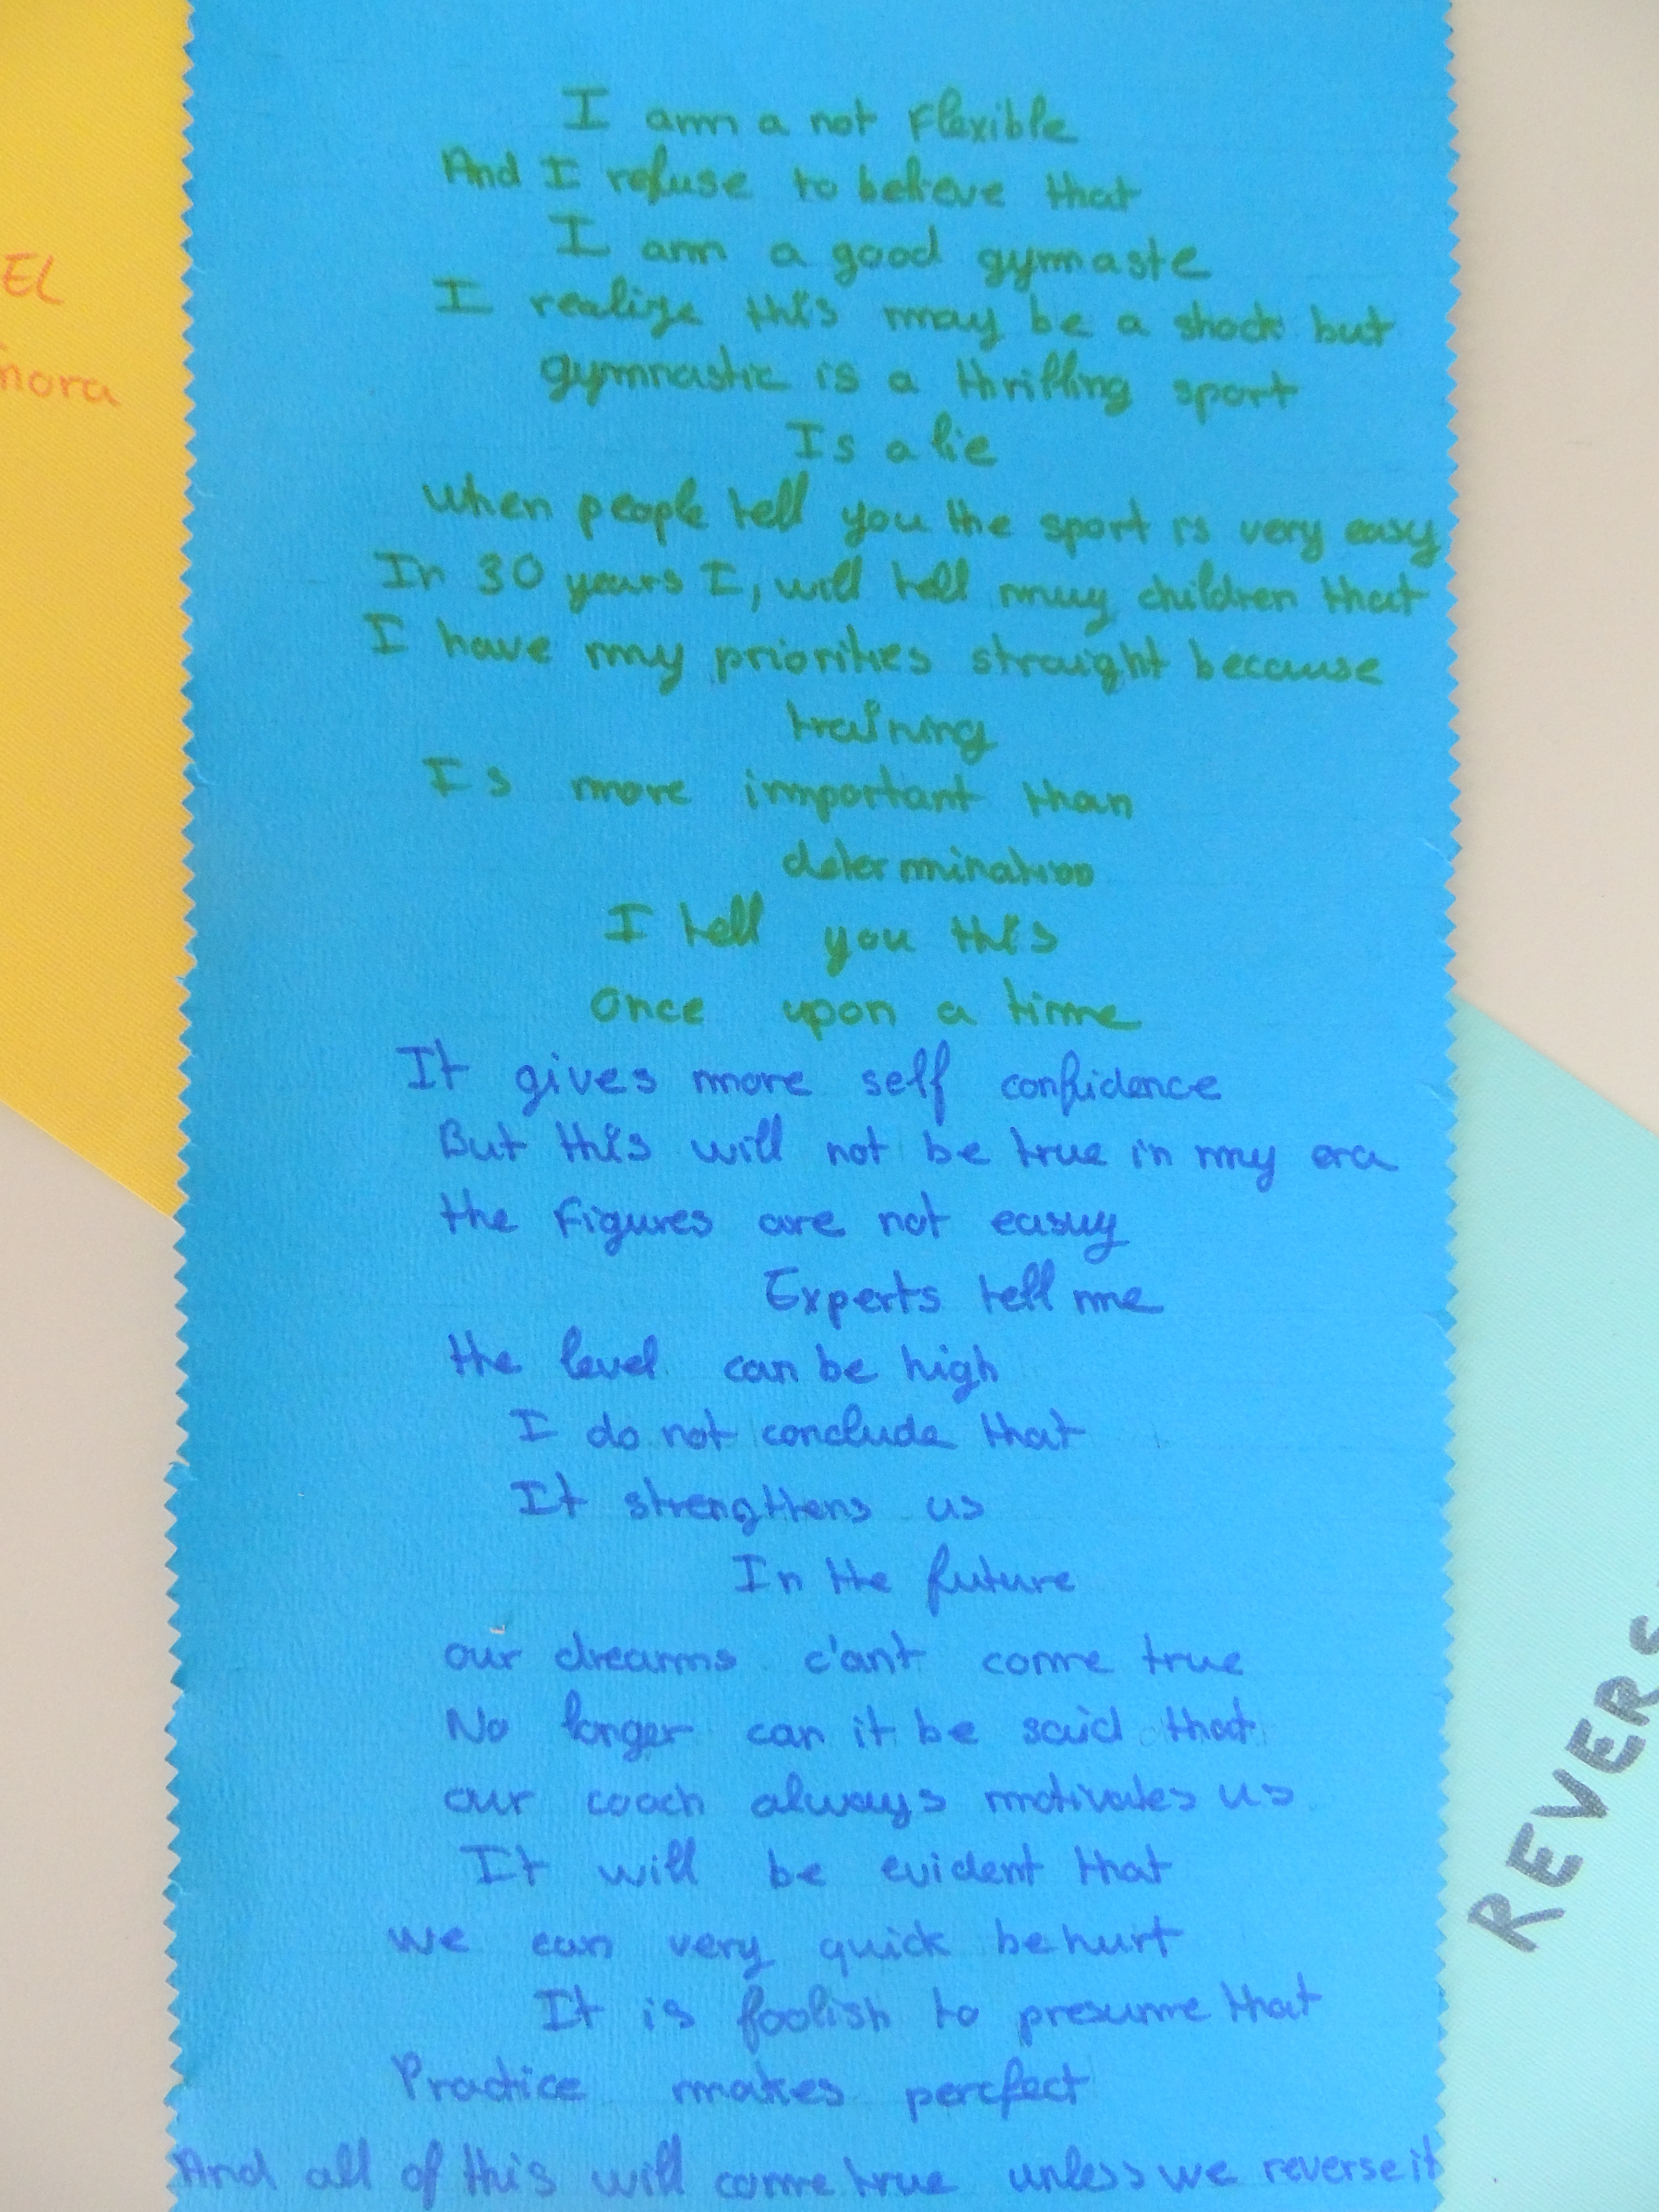 EL
nora
I am a not Flexible
And I refuse to believe that
I am a good gymnaste
I realize this may be a shock but
gymnastic is a thrilling sport
Is a lie
when people tell you the sport is very easy
In 30 years I, will tell my children that
I have my priorities straight because
training
Is more important than
determination
I tell you this
Once upon a time
It gives more self confidence
But this will not be true in my era
the figures are not easy
Experts tell me
the level can be high
I do not conclude that
It strengthens us
In the future
our dreams c'ant come true
No longer can it be said that
our coach always motivates us
It will be evident that
we can very quick be hurt
It is foolish to presume that
Practice makes percfect
And all of this will come true unless we reverse it
REVERS